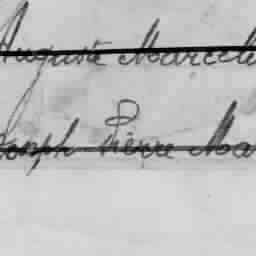 Auguste Marcel
Joseph Pierre Ma